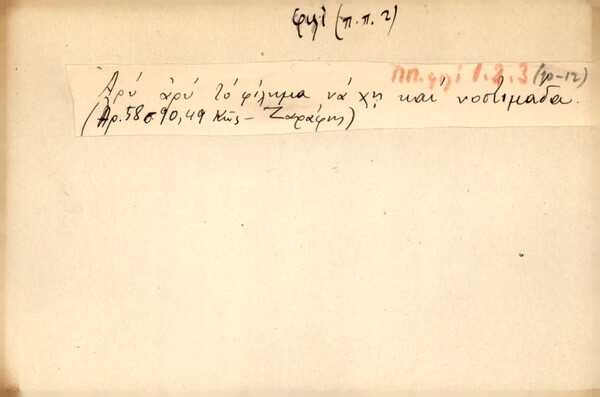 φιλί (π.π. 2)
ππ. φιλί 1.2.3 (10-12)
Ἀρύ ἀρύ τό φίλημα νά χῃ καί νοστιμάδα.
(Ἀρ. 58 σ 90, 49 Κῶς - Ζαράφτης)